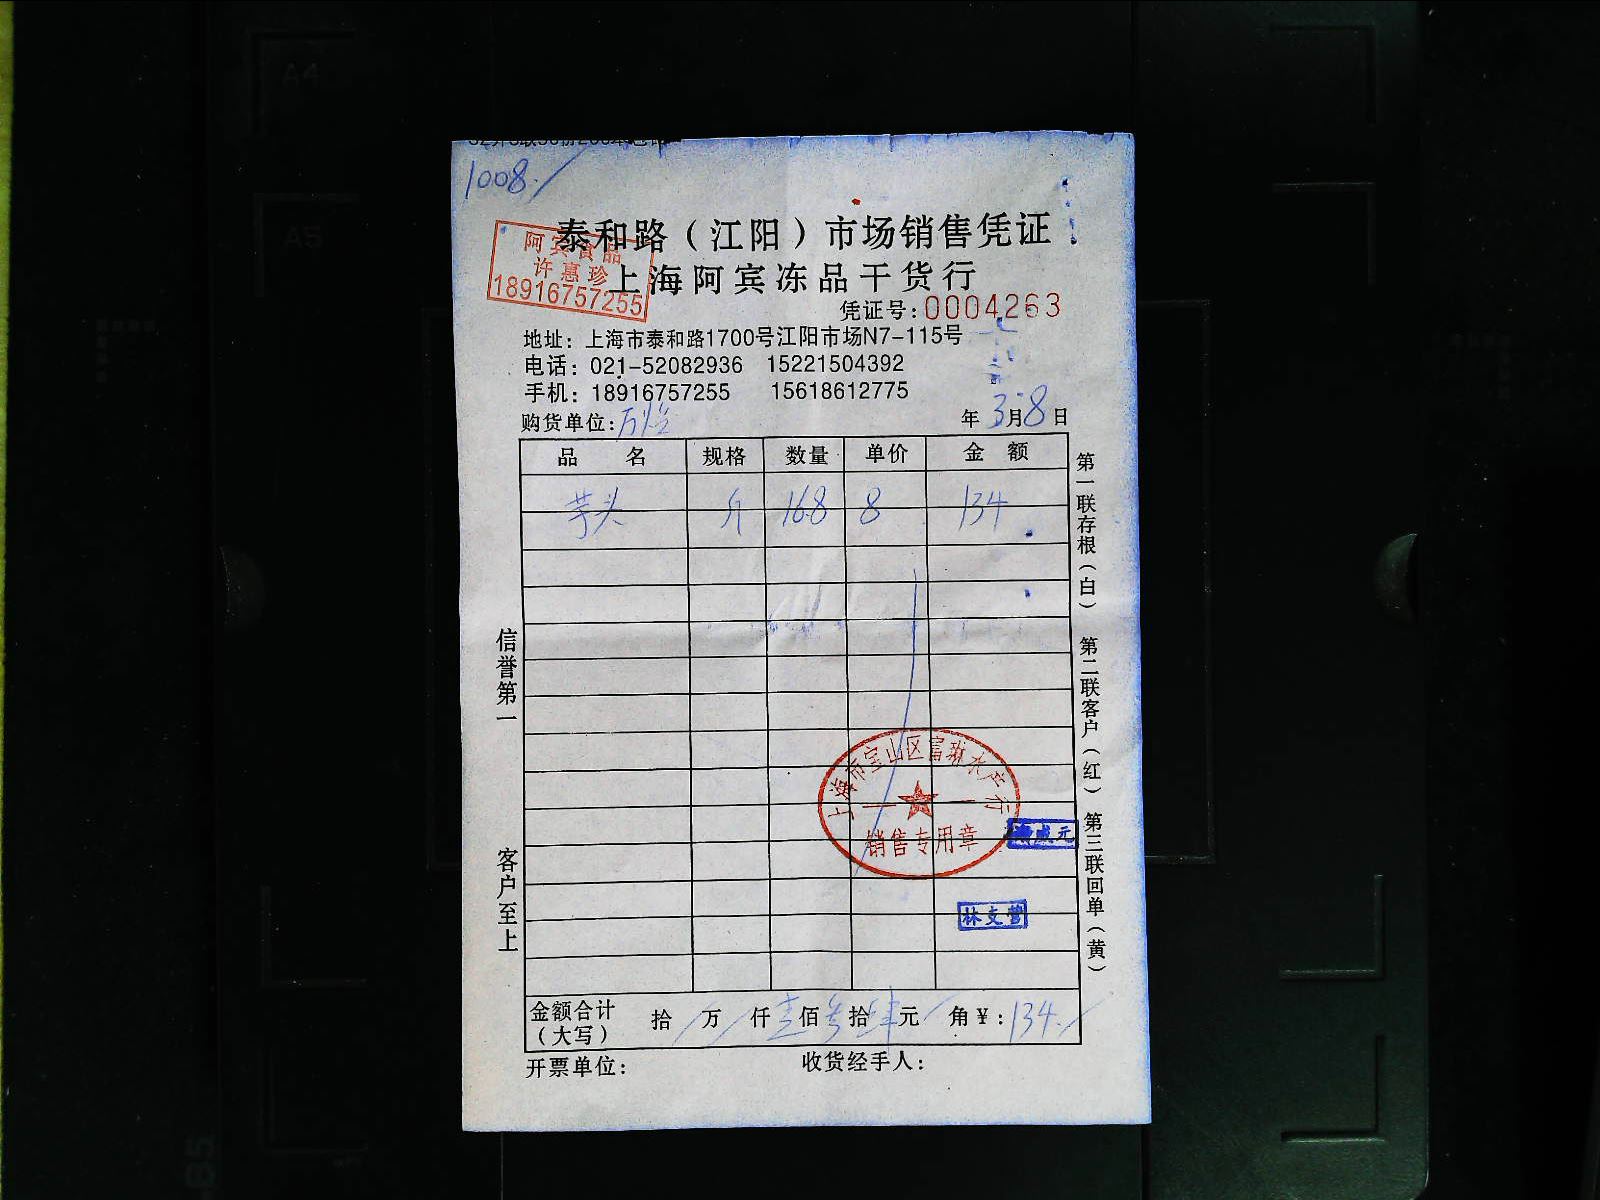 1008.
泰和路（江阳）市场销售凭证
阿宾食品
许惠珍
18916757255
上海阿宾冻品干货行
凭证号:0004263
地址：上海市泰和路1700号江阳市场N7-115号
电话：021-52082936 15221504392
手机：18916757255 15618612775
购货单位:
年 3月8日
品 名 规格 数量 单价 金 额
芋头 斤 16.8 8 134
第一联存根（白） 第二联客户（红） 第三联回单（黄）
信誉第一 客户至上
上海市宝山区富琳水产行
销售专用章
林支营
金额合计（大写） 拾 万 仟 壹佰 叁拾 肆元 角￥:134.
开票单位: 收货经手人:
A4
A5
B5